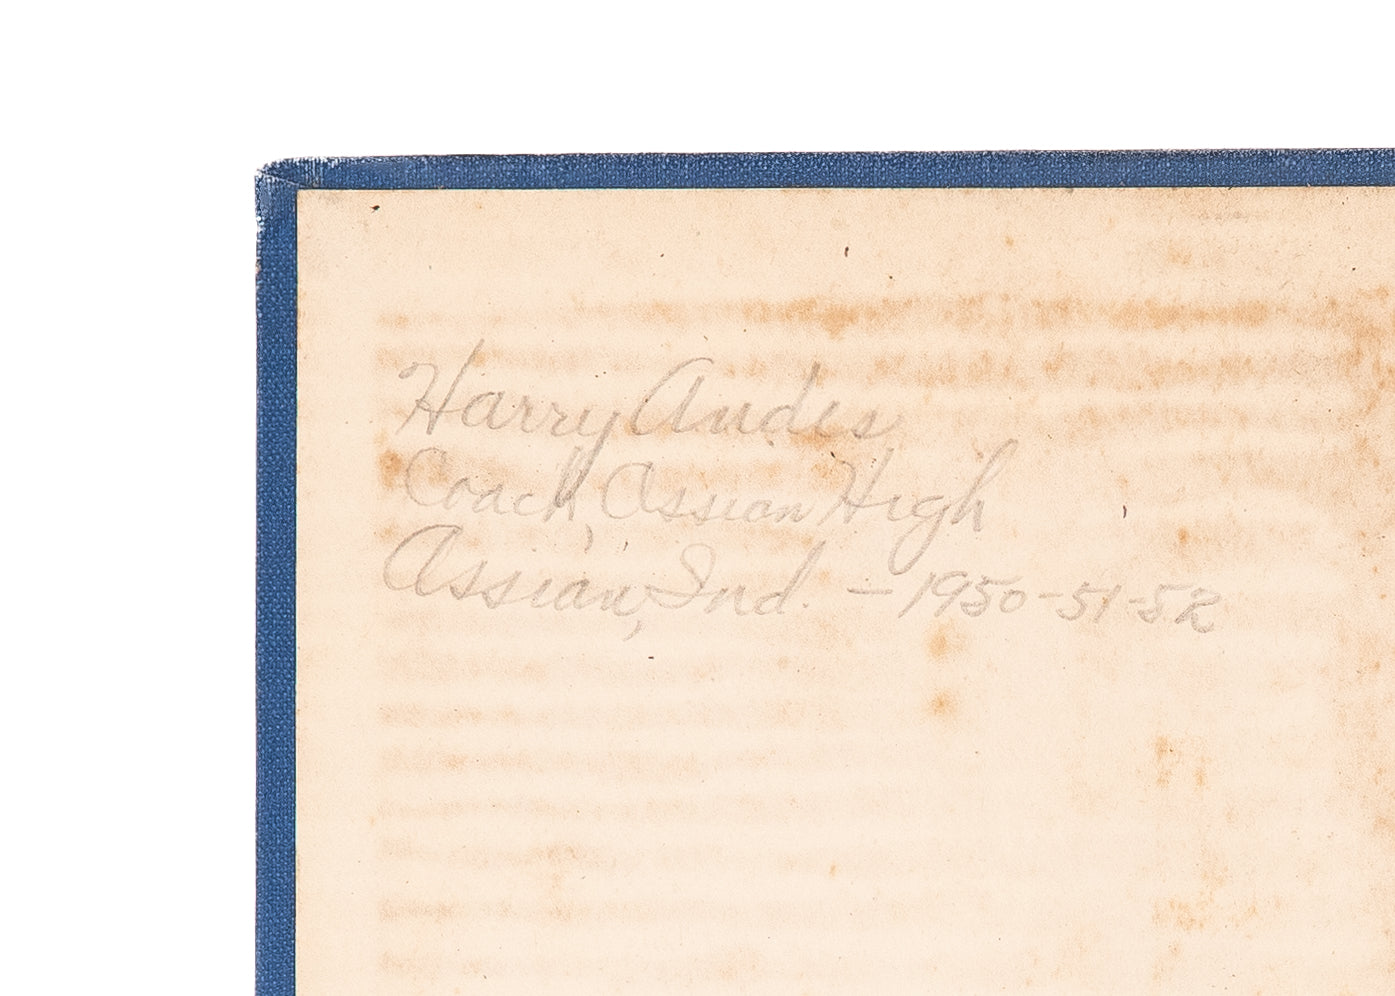 Harry Andes
Coach, Assian High
Assian, Ind. – 1950-51-52